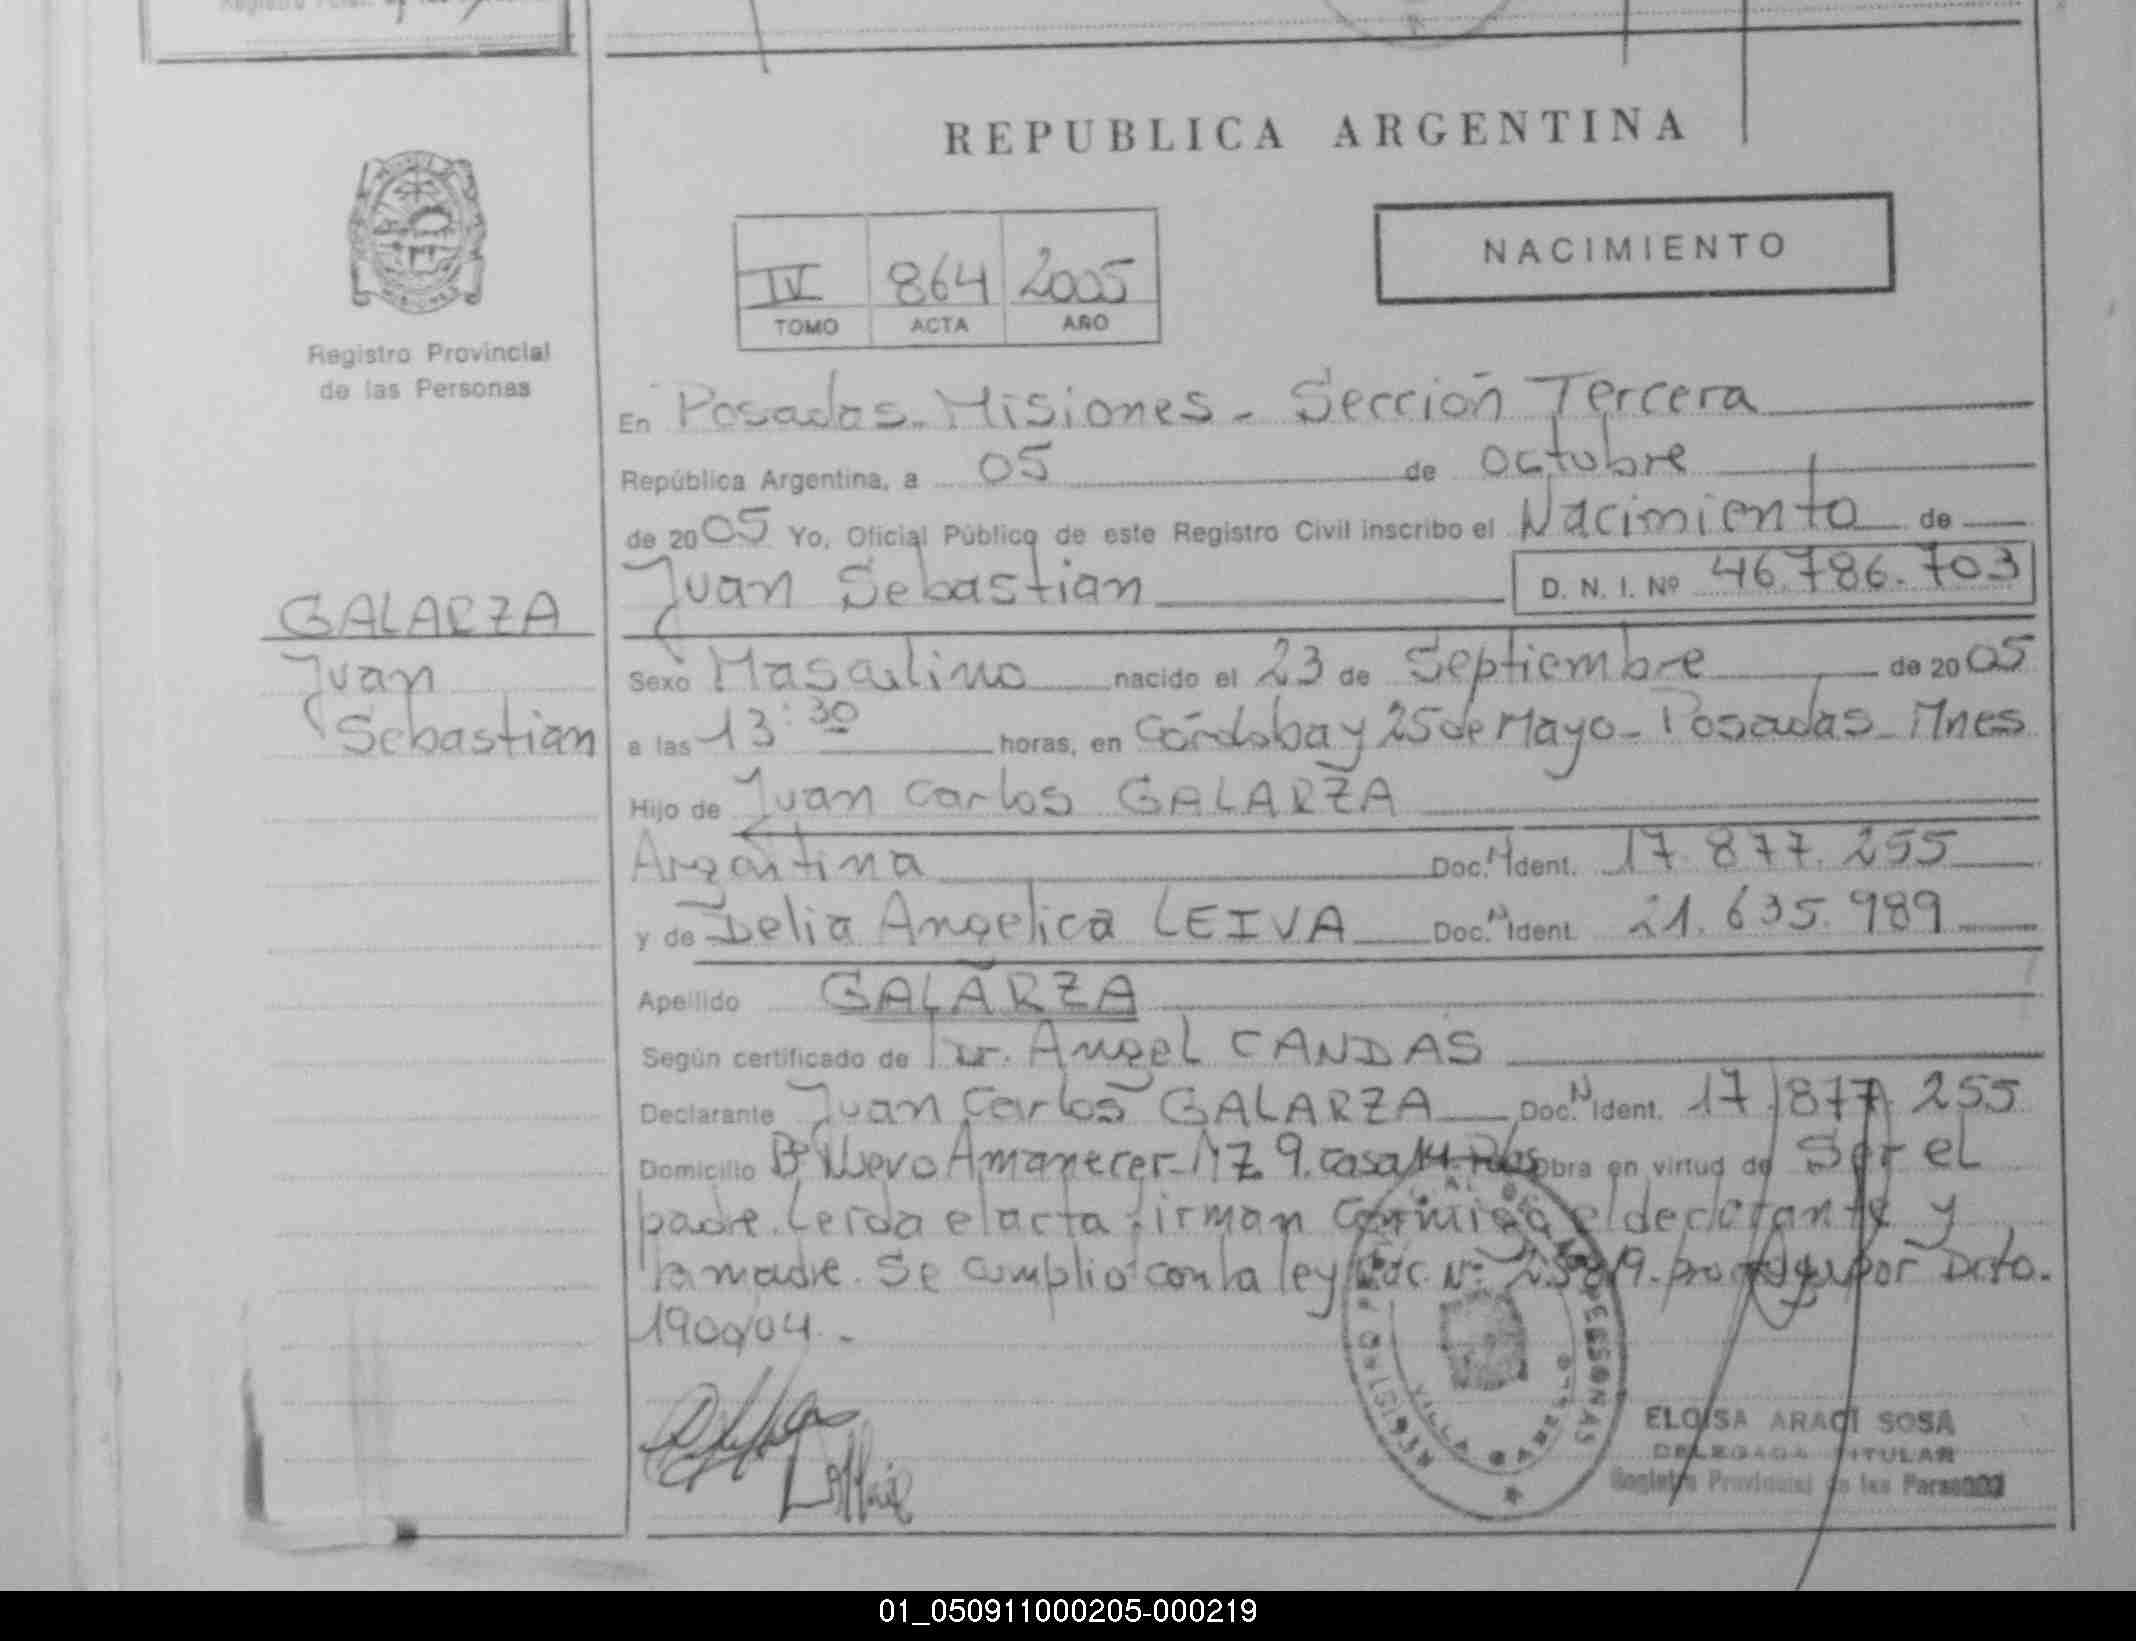 REPUBLICA ARGENTINA
NACIMIENTO
IV 864 2005
TOMO ACTA AÑO
Registro Provincial
de las Personas
En Posadas - Misiones - Sección Tercera
República Argentina, a 05 de octubre
de 2005 Yo, Oficial Público de este Registro Civil inscribo el Nacimiento de
Juan Sebastian D. N. I. Nº 46.786.703
GALARZA
Juan
Sebastian
Sexo Masculino nacido el 23 de Septiembre de 2005
a las 13:30 horas, en Córdoba y 25 de Mayo - Posadas - Mnes
Hijo de Juan Carlos GALARZA
Argentina Doc. N Ident. 17.877.255
y de Delia Angelica LEIVA Doc. N Ident. 21.635.989
Apellido GALARZA
Según certificado de Dr. Angel CANDAS
Declarante Juan Carlos GALARZA Doc. N Ident. 17.877.255
Domicilio Bº Nuevo Amanecer - MZ 9. casa 14. Pdas Obra en virtud de Ser el
padre. Leída el acta firman conmigo el declarante y
la madre. Se cumplió con la ley Nº por Dcto.
1900/04.-
REGISTRO PROVINCIAL DE LAS PERSONAS
VILLA
ELOISA ARACI SOSA
DELEGADA TITULAR
Registro Provincial de las Personas
01_050911000205-000219